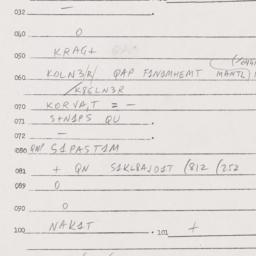 032 —
040 O
050 KRAG+
060 KOLN3/R/ QAP F1N1MHEMT MANTL)
/K8GLN3R
070 KORVA,T = —
071 S+N1PS QU
072 —
080 S1PAST1M
081 + QN S1KL8AJO1T (812 (252
089 O
090 O
100 NAK1T . 101 +